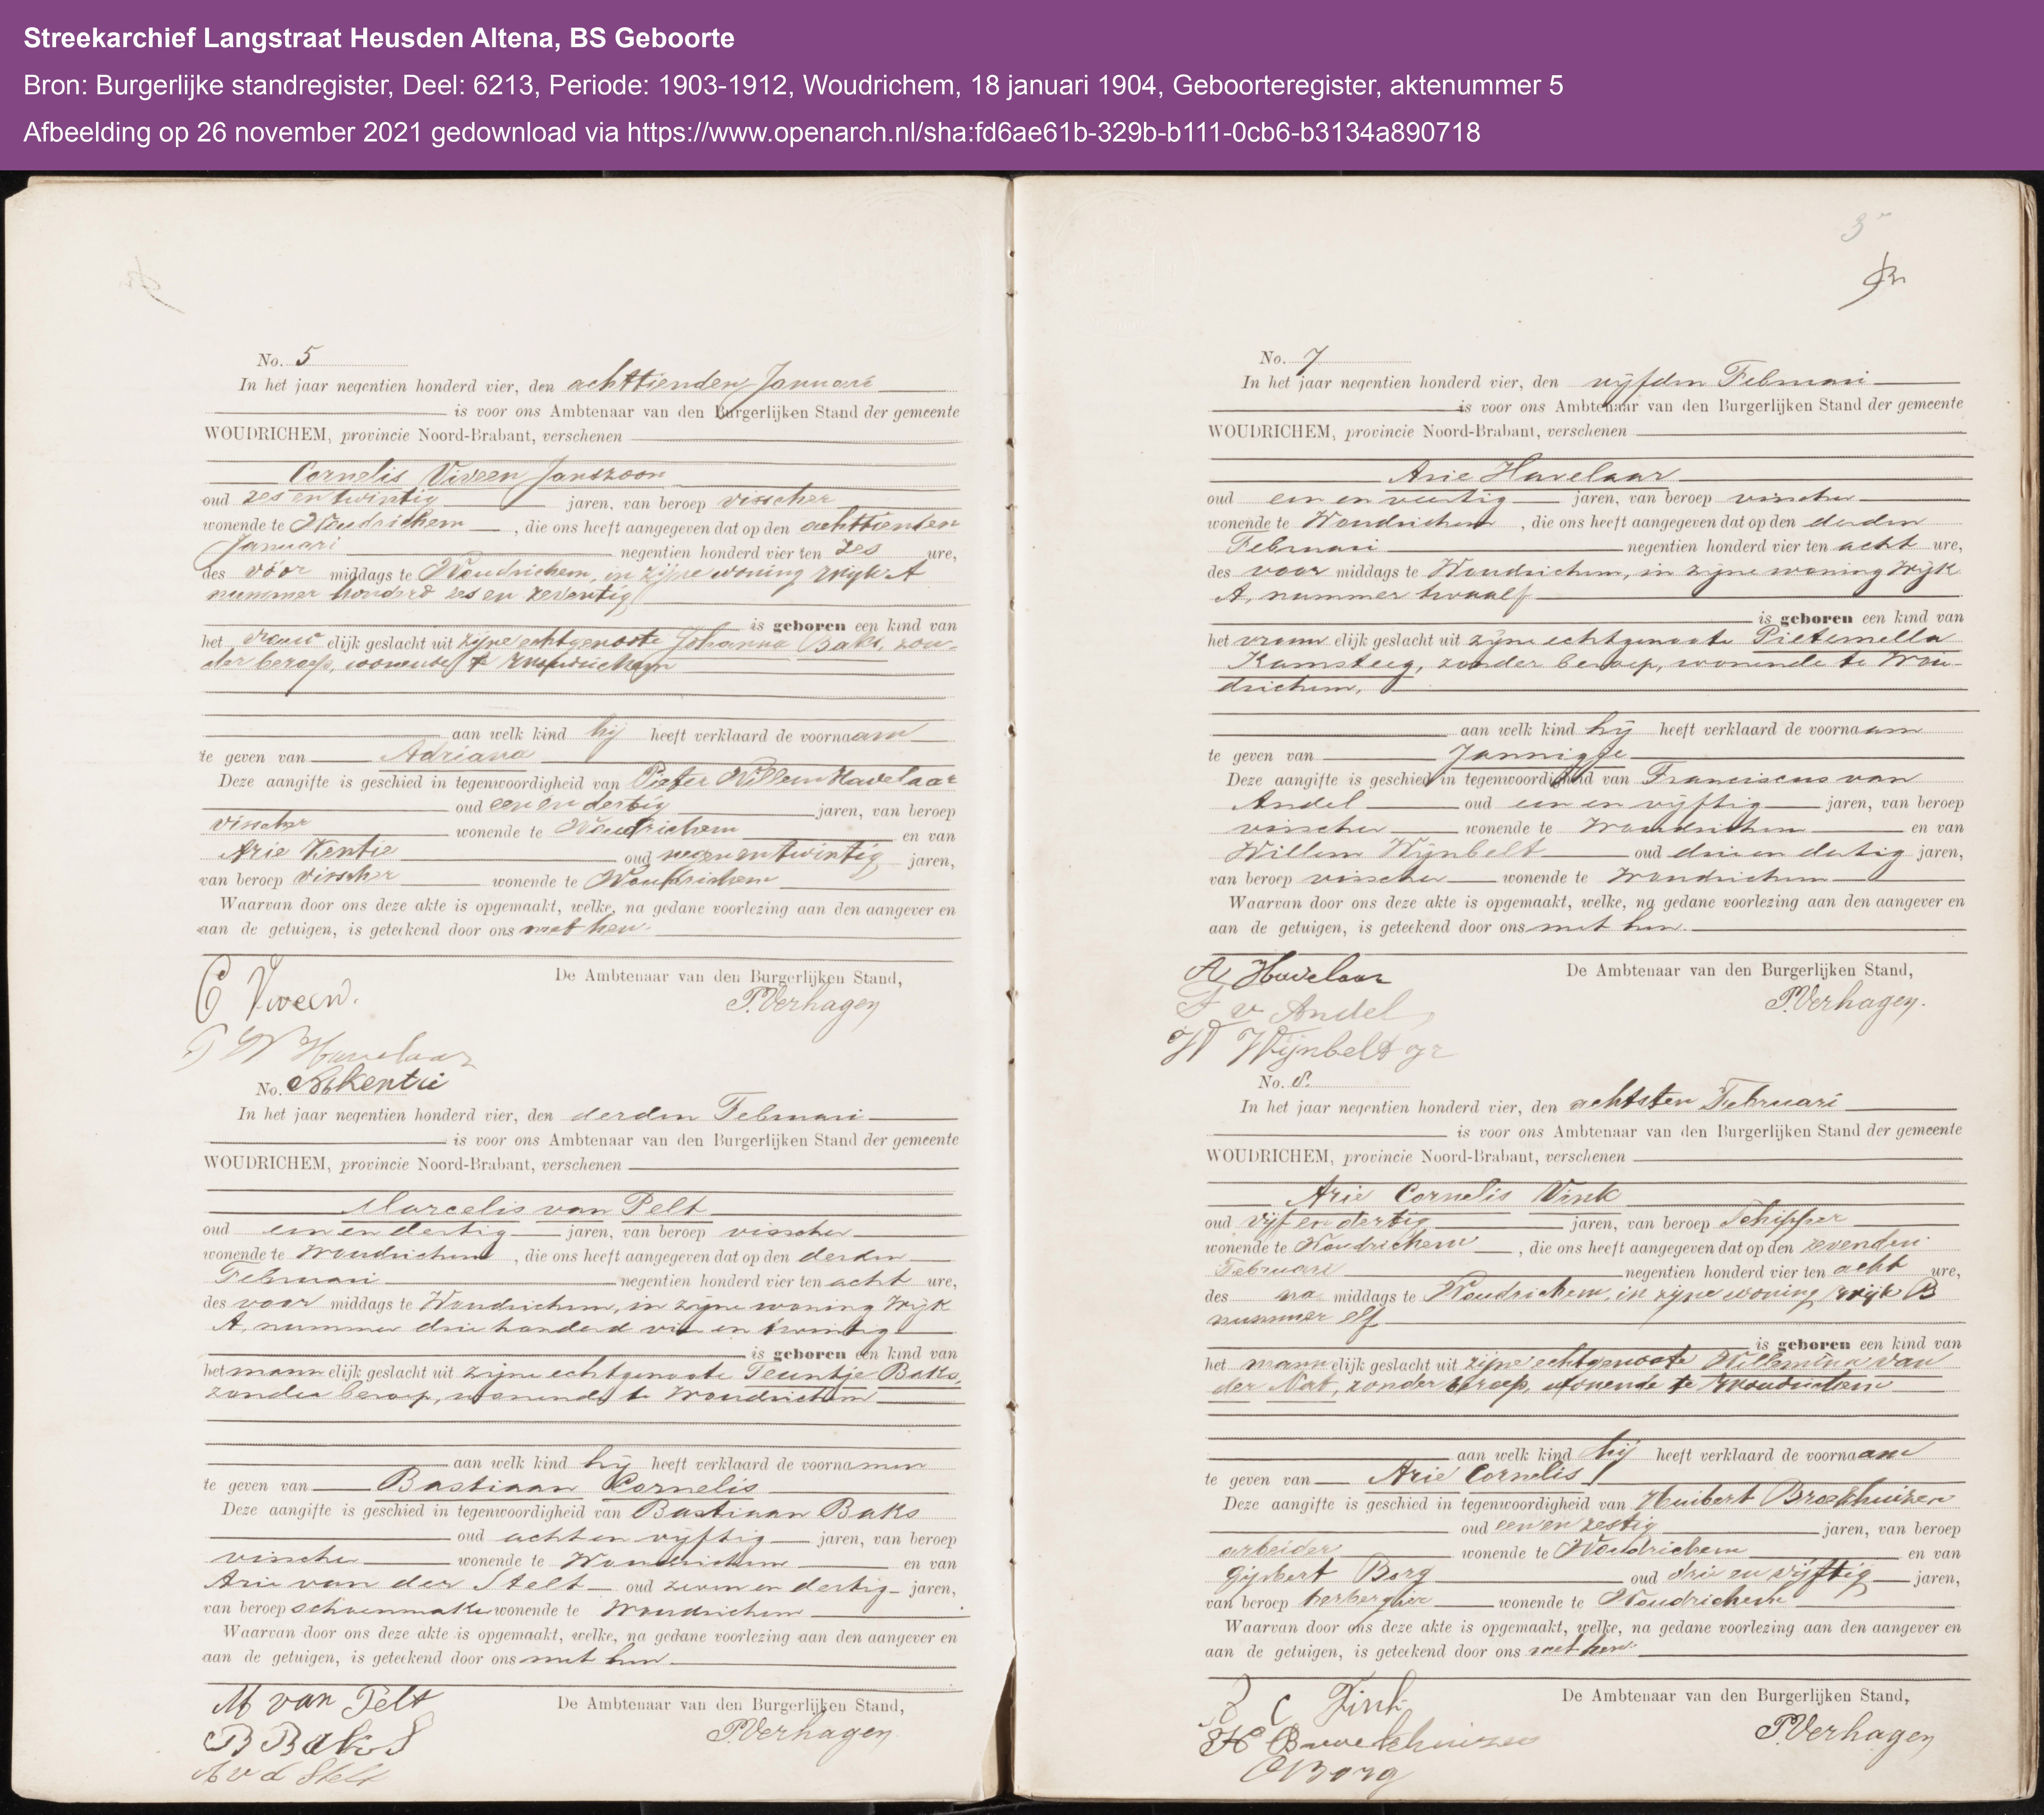 Streekarchief Langstraat Heusden Altena, BS Geboorte
Bron: Burgerlijke standregister, Deel: 6213, Periode: 1903-1912, Woudrichem, 18 januari 1904, Geboorteregister, aktenummer 5
Afbeelding op 26 november 2021 gedownload via https://www.openarch.nl/sha:fd6ae61b-329b-b111-0cb6-b3134a890718
No. 5
In het jaar negentien honderd vier, den achttienden Januari
is voor ons Ambtenaar van den Burgerlijken Stand der gemeente
WOUDRICHEM, provincie Noord-Brabant, verschenen
Cornelis Viveen Janszoon
oud zes en twintig jaren, van beroep visscher
wonende te Woudrichem, die ons heeft aangegeven dat op den achttienden
Januari negentien honderd vier ten zes ure,
des vóór middags te Woudrichem, in zijne woning wijk A
nummer honderd zes en zeventig
is geboren een kind van
het vrouwelijk geslacht uit zijne echtgenoote Johanna Baks, zon-
der beroep, wonende te Woudrichem
aan welk kind hij heeft verklaard de voornaam
te geven van Adriana
Deze aangifte is geschied in tegenwoordigheid van Pieter Willem Havelaar
oud een en dertig jaren, van beroep
visscher wonende te Woudrichem en van
Arie Kentie oud negen en twintig jaren,
van beroep visscher wonende te Woudrichem
Waarvan door ons deze akte is opgemaakt, welke, na gedane voorlezing aan den aangever en
aan de getuigen, is geteekend door ons met hen.
De Ambtenaar van den Burgerlijken Stand,
C Viveen.
P. Verhagen
P W Havelaar
No. A Kentie
In het jaar negentien honderd vier, den derden Februari
is voor ons Ambtenaar van den Burgerlijken Stand der gemeente
WOUDRICHEM, provincie Noord-Brabant, verschenen
Marcelis van Pelt
oud een en dertig jaren, van beroep visscher
wonende te Woudrichem, die ons heeft aangegeven dat op den derden
Februari negentien honderd vier ten acht ure,
des voor middags te Woudrichem, in zijne woning Wijk
A, nummer drie honderd vier en twintig
is geboren een kind van
het mannelijk geslacht uit zijne echtgenoote Teuntje Baks,
zonder beroep, wonende te Woudrichem
aan welk kind hij heeft verklaard de voornamen
te geven van Bastiaan Cornelis
Deze aangifte is geschied in tegenwoordigheid van Bastiaan Baks
oud acht en vijftig jaren, van beroep
visscher wonende te Woudrichem en van
Arie van der Stelt oud zeven en dertig jaren,
van beroep schoenmaker wonende te Woudrichem
Waarvan door ons deze akte is opgemaakt, welke, na gedane voorlezing aan den aangever en
aan de getuigen, is geteekend door ons met hen.
De Ambtenaar van den Burgerlijken Stand,
M van Pelt
P. Verhagen
B Baks
A v d Stelt
3
No. 7
In het jaar negentien honderd vier, den vijfden Februari
is voor ons Ambtenaar van den Burgerlijken Stand der gemeente
WOUDRICHEM, provincie Noord-Brabant, verschenen
Arie Havelaar
oud een en veertig jaren, van beroep visscher
wonende te Woudrichem, die ons heeft aangegeven dat op den derden
Februari negentien honderd vier ten acht ure,
des voor middags te Woudrichem, in zijne woning Wijk
A, nummer twaalf
is geboren een kind van
het vrouwelijk geslacht uit zijne echtgenoote Pieternella
Kamsteeg, zonder beroep, wonende te Wou-
drichem,
aan welk kind hij heeft verklaard de voornaam
te geven van Jannigje
Deze aangifte is geschied in tegenwoordigheid van Franciscus van
Andel oud een en vijftig jaren, van beroep
visscher wonende te Woudrichem en van
Willem Wijnbelt oud drie en dertig jaren,
van beroep visscher wonende te Woudrichem
Waarvan door ons deze akte is opgemaakt, welke, na gedane voorlezing aan den aangever en
aan de getuigen, is geteekend door ons met hen.
De Ambtenaar van den Burgerlijken Stand,
A Havelaar
P. Verhagen.
F v Andel
W Wijnbelt
No. 8.
In het jaar negentien honderd vier, den achtsten Februari
is voor ons Ambtenaar van den Burgerlijken Stand der gemeente
WOUDRICHEM, provincie Noord-Brabant, verschenen
Arie Cornelis Vink
oud vijf en dertig jaren, van beroep Schipper
wonende te Woudrichem, die ons heeft aangegeven dat op den zevenden
Februari negentien honderd vier ten acht ure,
des na middags te Woudrichem, in zijne woning wijk B
nummer elf
is geboren een kind van
het mannelijk geslacht uit zijne echtgenoote Willemina van
der Nat, zonder beroep, wonende te Woudrichem
aan welk kind hij heeft verklaard de voornaam
te geven van Arie Cornelis
Deze aangifte is geschied in tegenwoordigheid van Huibert Broekhuizen
oud een en zestig jaren, van beroep
arbeider wonende te Woudrichem en van
Gijsbert Borg oud drie en vijftig jaren,
van beroep herbergier wonende te Woudrichem
Waarvan door ons deze akte is opgemaakt, welke, na gedane voorlezing aan den aangever en
aan de getuigen, is geteekend door ons met hen.
De Ambtenaar van den Burgerlijken Stand,
A C Vink
P. Verhagen
H Broekhuizen
G Borg